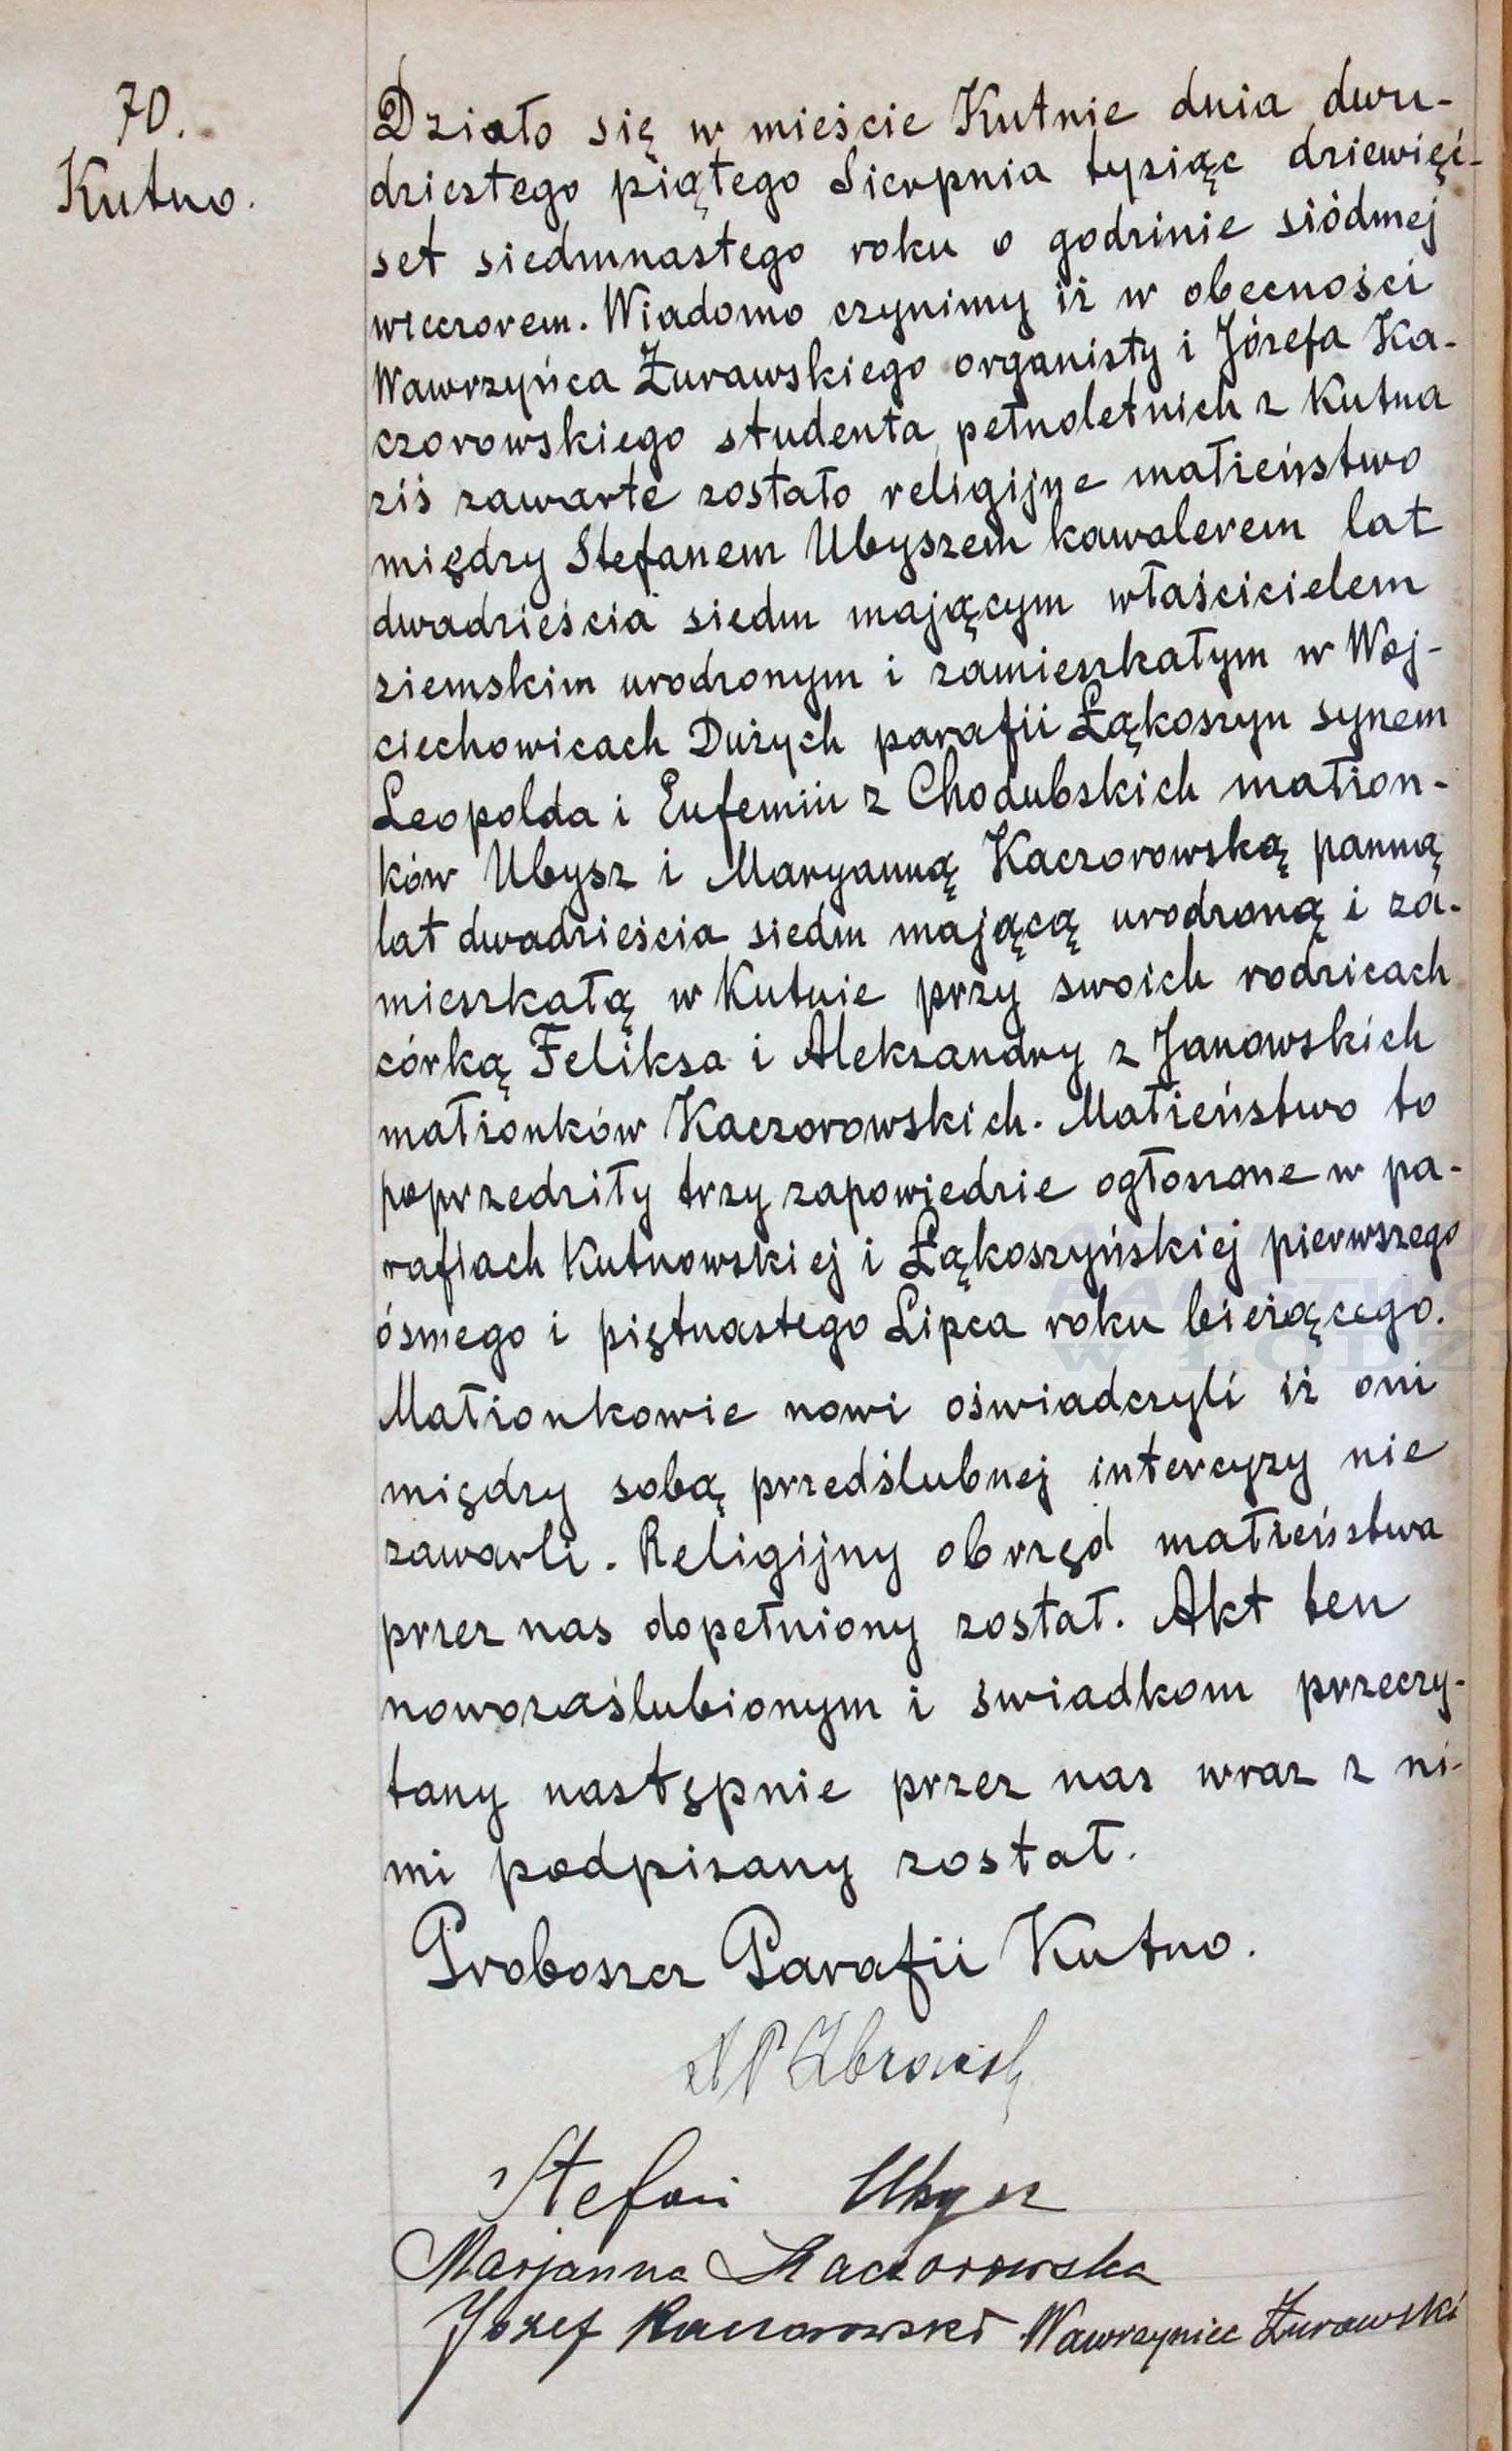 70.
Kutno.
Działo się w mieście Kutnie dnia dwu-
dziestego piątego Sierpnia tysiąc dziewięć-
set siedmnastego roku o godzinie siódmej
wieczorem. Wiadomo czynimy iż w obecności
Wawrzyńca Żurawskiego organisty i Józefa Ka-
czorowskiego studenta, pełnoletnich z Kutna
ziś zawarte zostało religijne małżeństwo
między Stefanem Ubyszem kawalerem lat
dwadzieścia siedm mającym właścicielem
ziemskim urodzonym i zamieszkałym w Woj-
ciechowicach Dużych parafii Łąkoszyn synem
Leopolda i Eufemii z Chodubskich małżon-
ków Ubysz i Maryanną Kaczorowską panną
lat dwadzieścia siedm mającą urodzoną i za-
mieszkałą w Kutnie przy swoich rodzicach
córką Feliksa i Aleksandry z Janowskich
małżonków Kaczorowskich. Małżeństwo to
poprzedziły trzy zapowiedzie ogłoszone w pa-
rafiach Kutnowskiej i Łąkoszyńskiej pierwszego
ósmego i piętnastego Lipca roku bieżącego.
Małżonkowie nowi oświadczyli iż oni
między sobą przedślubnej intercyzy nie
zawarli. Religijny obrzęd małżeństwa
przez nas dopełniony został. Akt ten
nowozaślubionym i świadkom przeczy-
tany następnie przez nas wraz z ni-
mi podpisany został.
Proboszcz Parafii Kutno.
Stefan Ubysz
Marjanna Kaczorowska
Józef Kaczorowski Wawrzyniec Żurawski
W ŁODZI